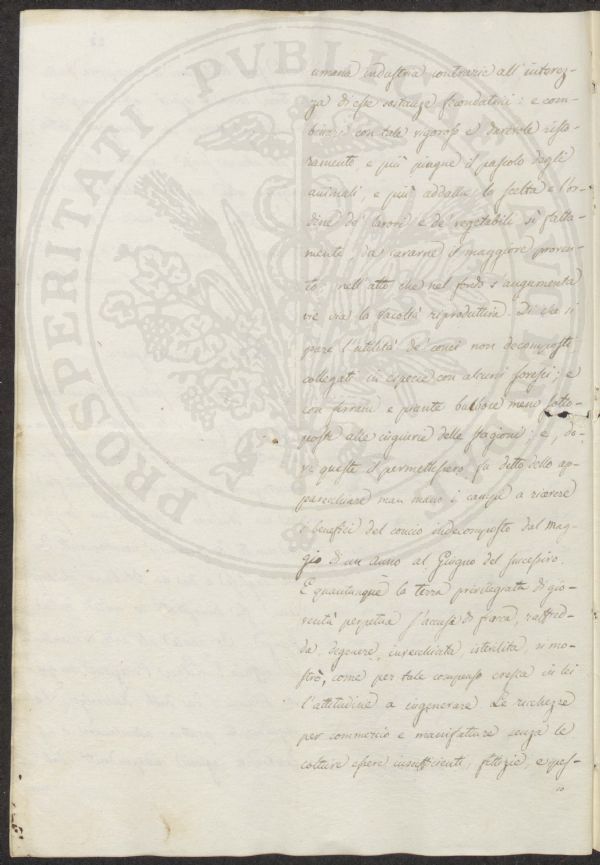 PROSPERITATI PUBLICAE
umana industria contrarie all'interez-
za di esse sostanze fecondatrici: e com-
con tale vigoroso e durevole risto-
ramento, e più pingue il pascolo degli
animali, e più addatta la scelta e l'or-
dine de' lavori e de' vegetabili sì fatta-
mente da cavarne il maggiore proven-
to, nell'atto che nel fondo s'augumenta
via via la facoltà riproduttiva. Di che si
pare l'utilità de' conci non decomposti
collegati in ispecie con alcuni foresci; e
con ferrane e piante bulbose meno sotto-
poste alle ingiurie delle stagioni: e, do-
ve queste il permettessero, fu detto dello ap-
parecchiare man mano i campi a ricevere
i benefici del concio indecomposto dal mag-
gio di un anno al Giugno del successivo.
E quantunque la terra privilegiata di gio-
ventù perpetua s'accusi di fiacca, raffred-
da, degenere, invecchiata, isterilita, si mo-
strò, come per tale compenso cresca in lei
l'attitudine a ingenerare. Le ricchezze
per commercio e manifatture senza le
colture essere insufficienti, fittizie, e spes-
so